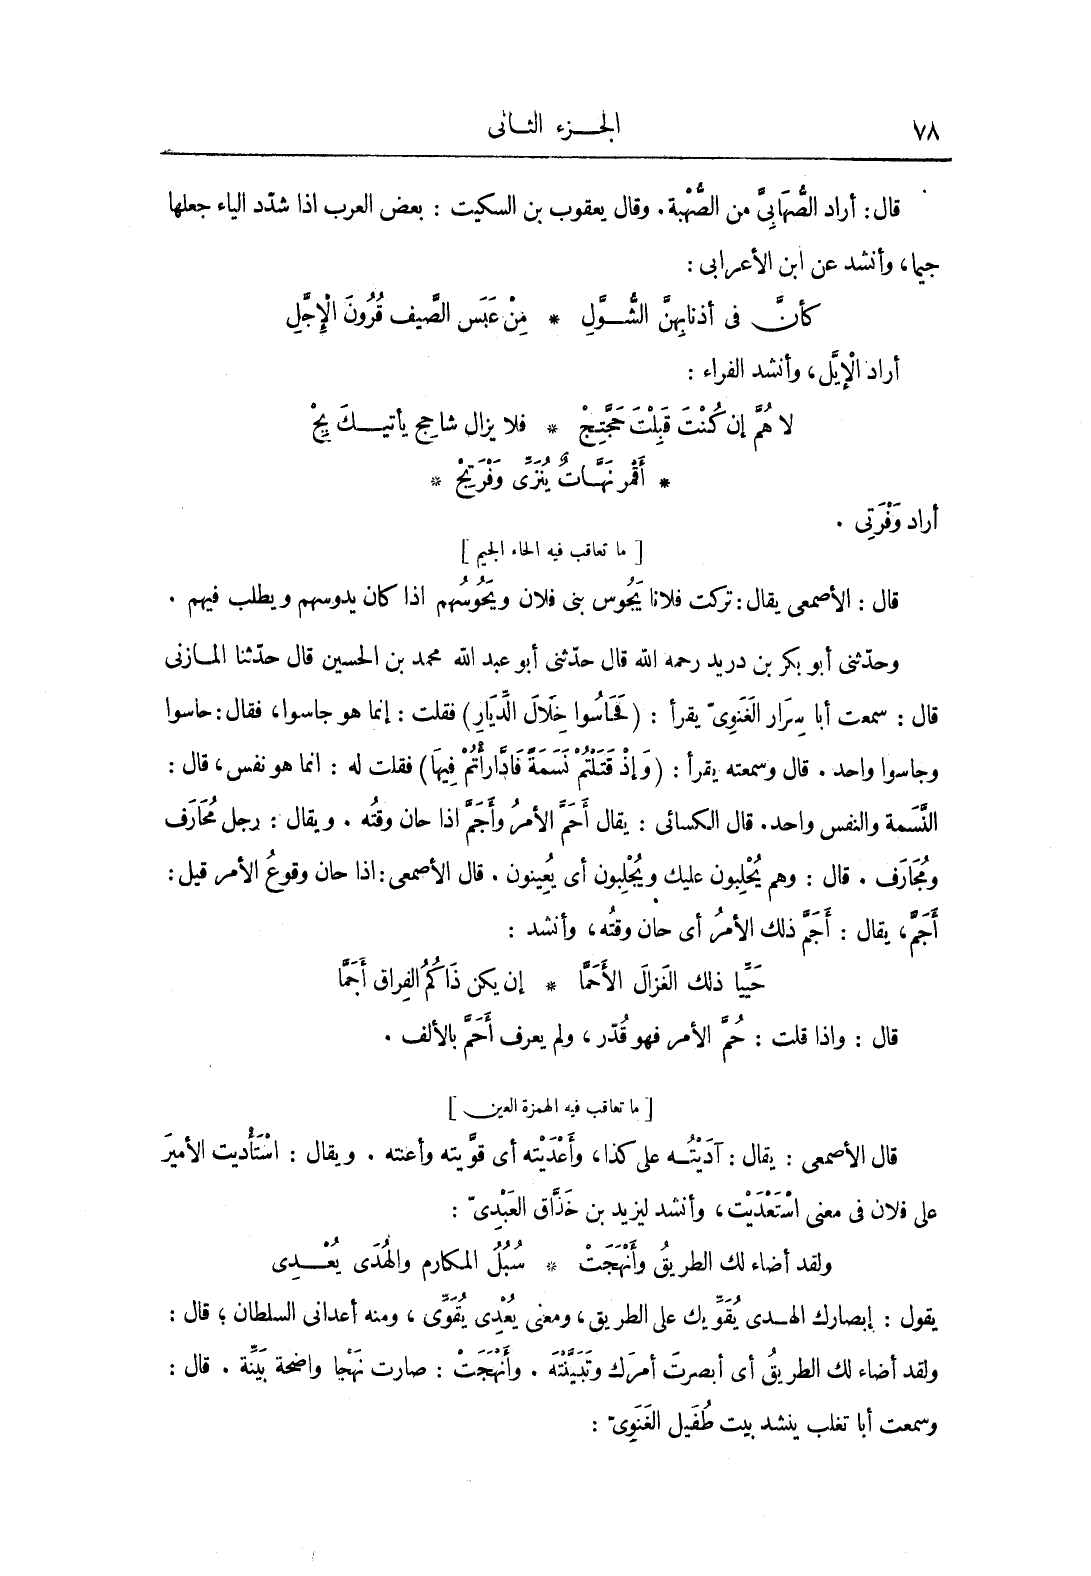 ٧٨ الجزء الثانى
قال: أراد الصُّهَابِىَّ من الصُّهْبة. وقال يعقوب بن السكيت : بعض العرب اذا شدّد الياء جعلها
جيما، وأنشد عن ابن الأعرابى :
كأنَّ فى أذنابِهنَّ الشُّوَّلِ * مِنْ عَبَس الصَّيف قُرُونَ الْإجَّلِ
أراد الْإيَّل، وأنشد الفراء :
لا هُمَّ إن كُنْتَ قَبِلْتَ حَجَّتِجْ * فلا يزال شاحِج يأتيكَ بِجْ
* أَقْمر نَهَّاتٌ يُنَزِّى وَفْرَتِجْ *
أراد وَفْرَتِى .
[ ما تعاقب فيه الحاء الجيم ]
قال : الأصمعى يقال : تركت فلانا يَجُوس بنى فلان ويَحُوسُهم اذا كان يدوسهم ويطلب فيهم .
وحدّثنى أبو بكر بن دريد رحمه الله قال حدّثنى أبو عبد الله محمد بن الحسين قال حدّثنا المازنى
قال : سمعت أبا سِرَار الغَنَوِىّ يقرأ : (فَحَاسُوا خِلَالَ الدِّيَارِ) فقلت : إنما هو جاسوا، فقال : حاسوا
وجاسوا واحد . قال وسمعته يقرأ : (وَإذْ قَتَلْتُمْ نَسَمَةً فَادَّارَأْتُمْ فِيهَا) فقلت له : انما هو نفس، قال :
النَّسَمة والنفس واحد. قال الكسائى : يقال أَحَمَّ الأمرُ وأَجَمَّ اذا حان وقتُه . ويقال : رجل مُحَارَف
ومُجَارَف . قال : وهم يُحْلِبون عليك ويُجْلِبون أى يُعِينون . قال الأصمعى : اذا حان وقوعُ الأمر قيل :
أَجَمَّ، يقال : أَجَمَّ ذلك الأمرُ أى حان وقتُه، وأنشد :
حَيِّيا ذلك الغَزالَ الأَحَمَّا * إن يكن ذَاكُمُ الفِراق أَجَمَّا
قال : واذا قلت : حُمَّ الأمر فهو قُدّر، ولم يعرف أَحَمَّ بالألف .
[ ما تعاقب فيه الهمزة العين ]
قال الأصمعى : يقال : آدَيْتُه على كذا، وأَعْدَيْته أى قوَّيته وأعنته . ويقال : اسْتَأْديت الأميرَ
على فلان فى معنى اسْتَعْدَيْت، وأنشد ليزيد بن خَذَّاق العَبْدِىّ :
ولقد أضاء لك الطريقُ وأَنْهَجَتْ * سُبُلُ المكارم والهُدَى يُعْدِى
يقول : إبصارك الهدى يُقَوِّيك على الطريق، ومعنى يُعْدِى يُقَوِّى، ومنه أعدانى السلطان؛ قال :
ولقد أضاء لك الطريقُ أى أبصرتَ أمرَك وتَبَيَّنْتَه . وأَنْهَجَتْ : صارت نَهْجا واضحة بَيِّنة . قال :
وسمعت أبا تغلب ينشد بيت طُفَيل الغَنَوِىّ :